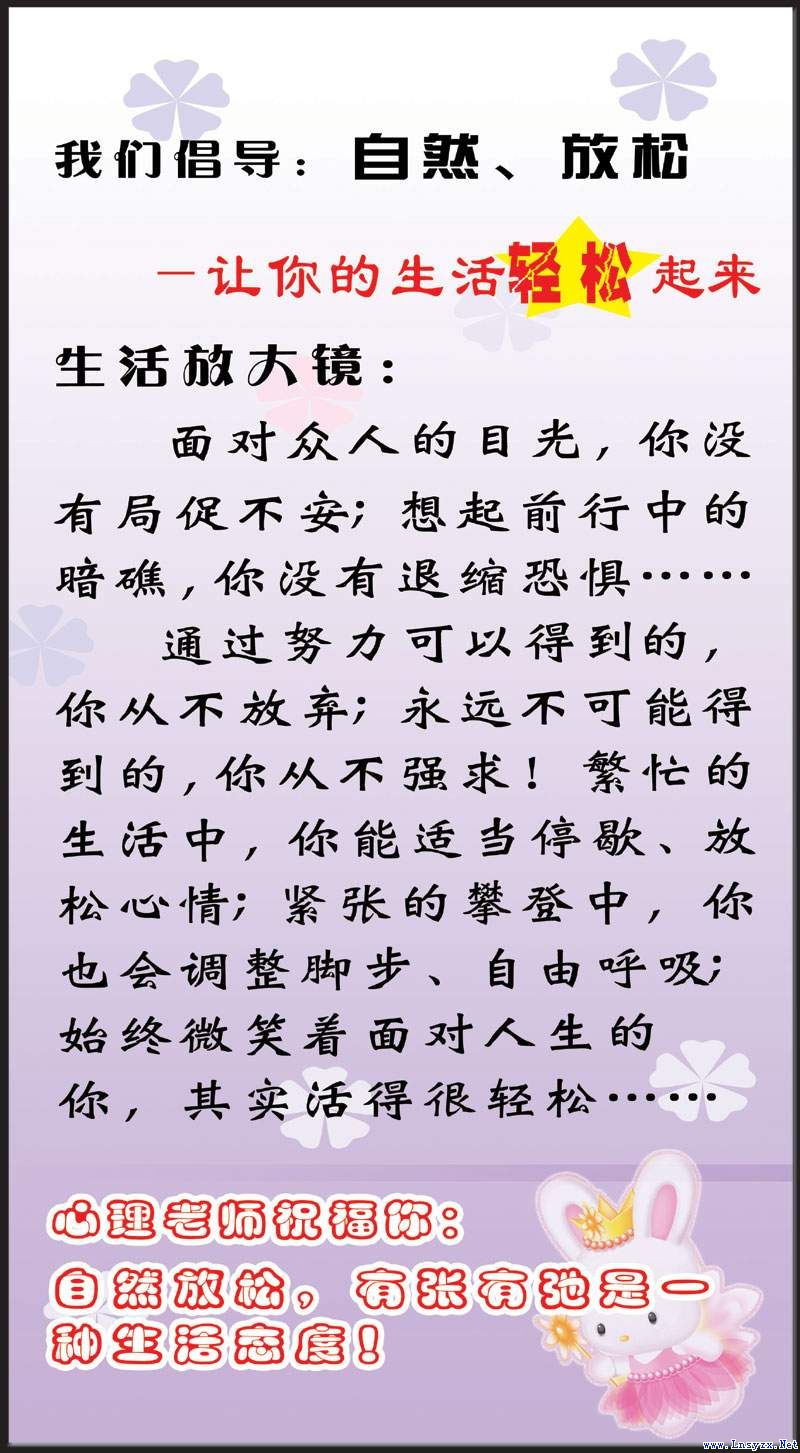 我们倡导：自然、放松
－让你的生活轻松起来
生活放大镜：
面对众人的目光，你没
有局促不安；想起前行中的
暗礁，你没有退缩恐惧……
通过努力可以得到的，
你从不放弃；永远不可能得
到的，你从不强求！繁忙的
生活中，你能适当停歇、放
松心情；紧张的攀登中，你
也会调整脚步、自由呼吸；
始终微笑着面对人生的
你，其实活得很轻松……
心理老师祝福你：
自然放松，有张有弛是一
种生活态度！
www.Lnsyzx.Net